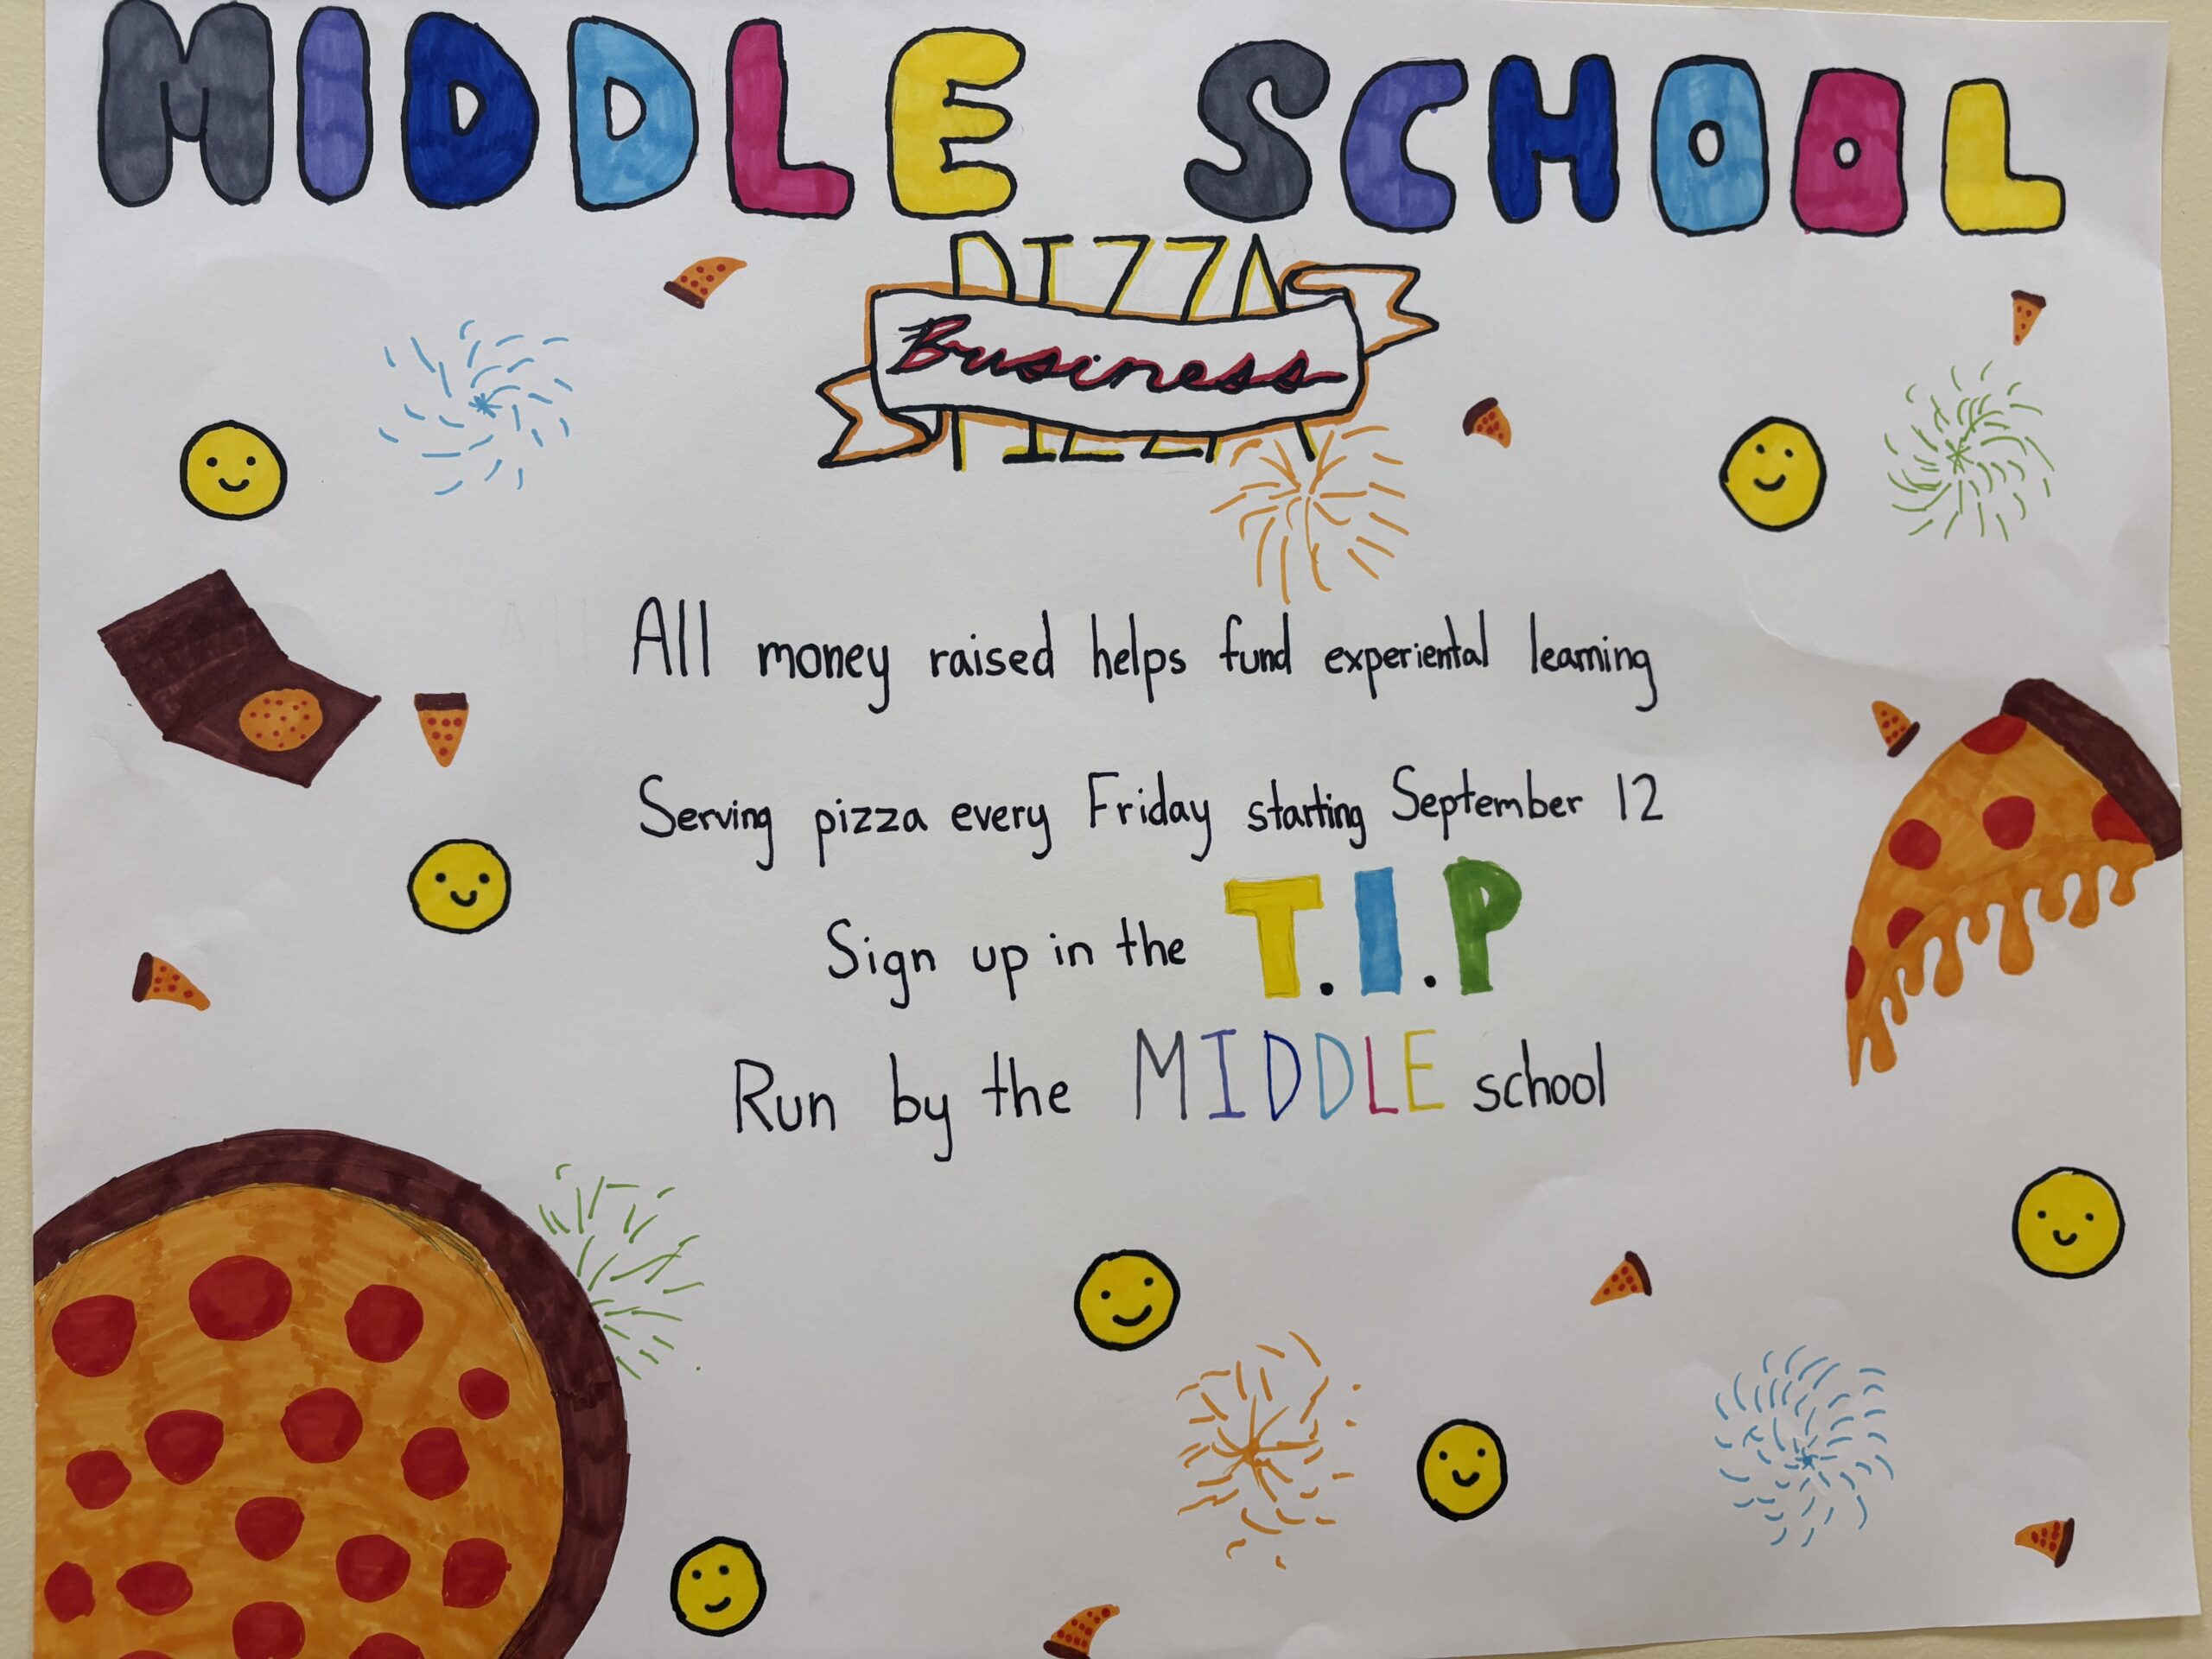 MIDDLE SCHOOL
PIZZA
Business
All money raised helps fund experiental learning
Serving pizza every Friday starting September 12
Sign up in the T.I.P
Run by the MIDDLE school